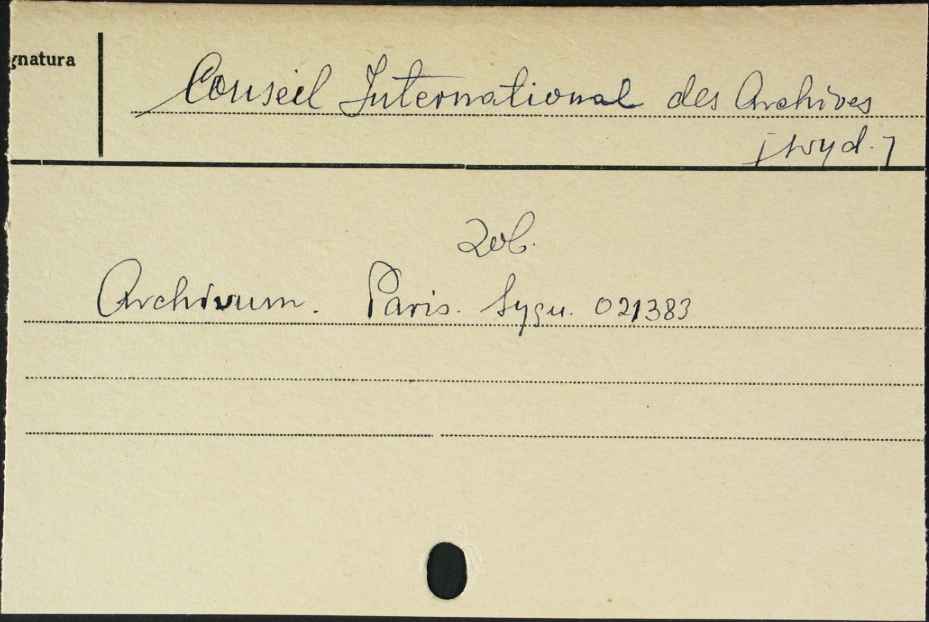 gnatura
Conseil International des Archives
[wyd.]
Zob.
Archivum. Paris. Sygn. 021383